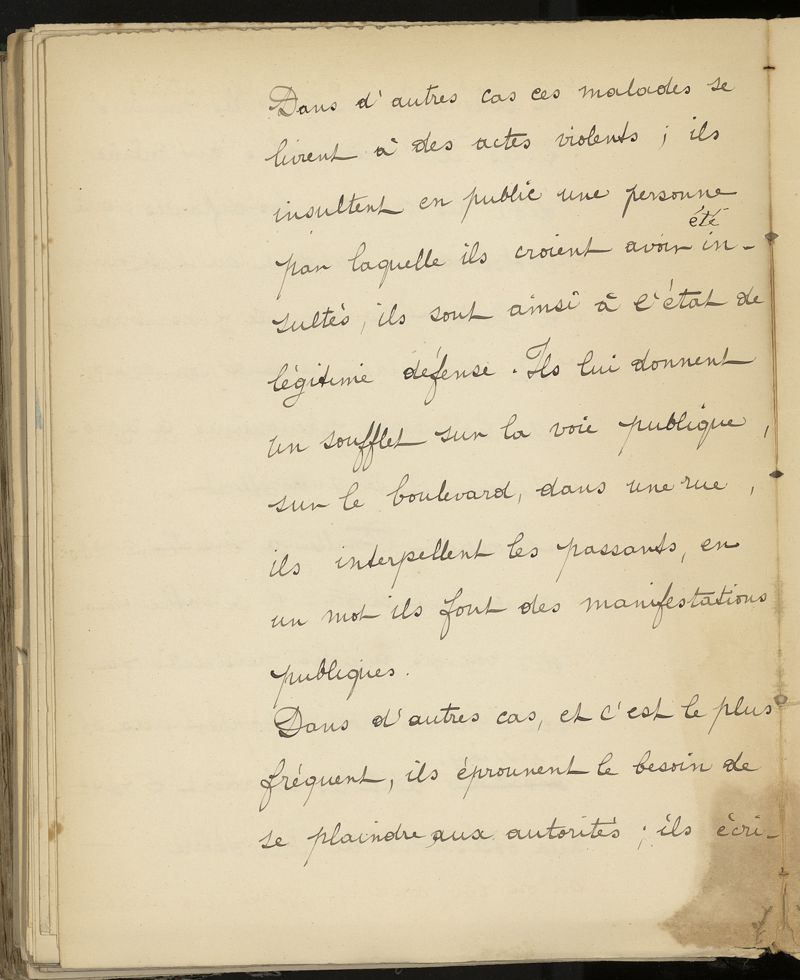 Dans d'autres cas ces malades se
livrent à des actes violents ; ils
insultent en public une personne
par laquelle ils croient avoir été in-
sultés, ils sont ainsi à l'état de
légitime défense. Ils lui donnent
un soufflet sur la voie publique,
sur le boulevard, dans une rue,
ils interpellent les passants, en
un mot ils font des manifestations
publiques.
Dans d'autres cas, et c'est le plus
fréquent, ils éprouvent le besoin de
se plaindre aux autorités ; ils écri-